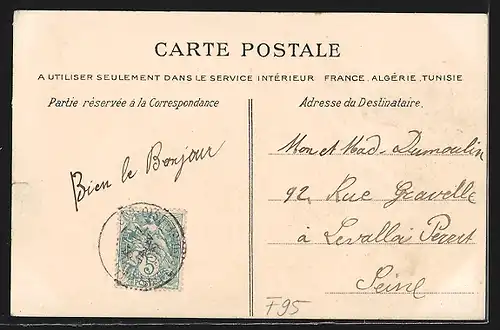 CARTE POSTALE
A UTILISER SEULEMENT DANS LE SERVICE INTÉRIEUR FRANCE, ALGÉRIE, TUNISIE
Partie réservée à la Correspondance
Adresse du Destinataire.
Bien le Bonjour
Mon et Mad. Dumoulin
92 Rue Gravelle
à Levallois Perret
Seine
5
F95